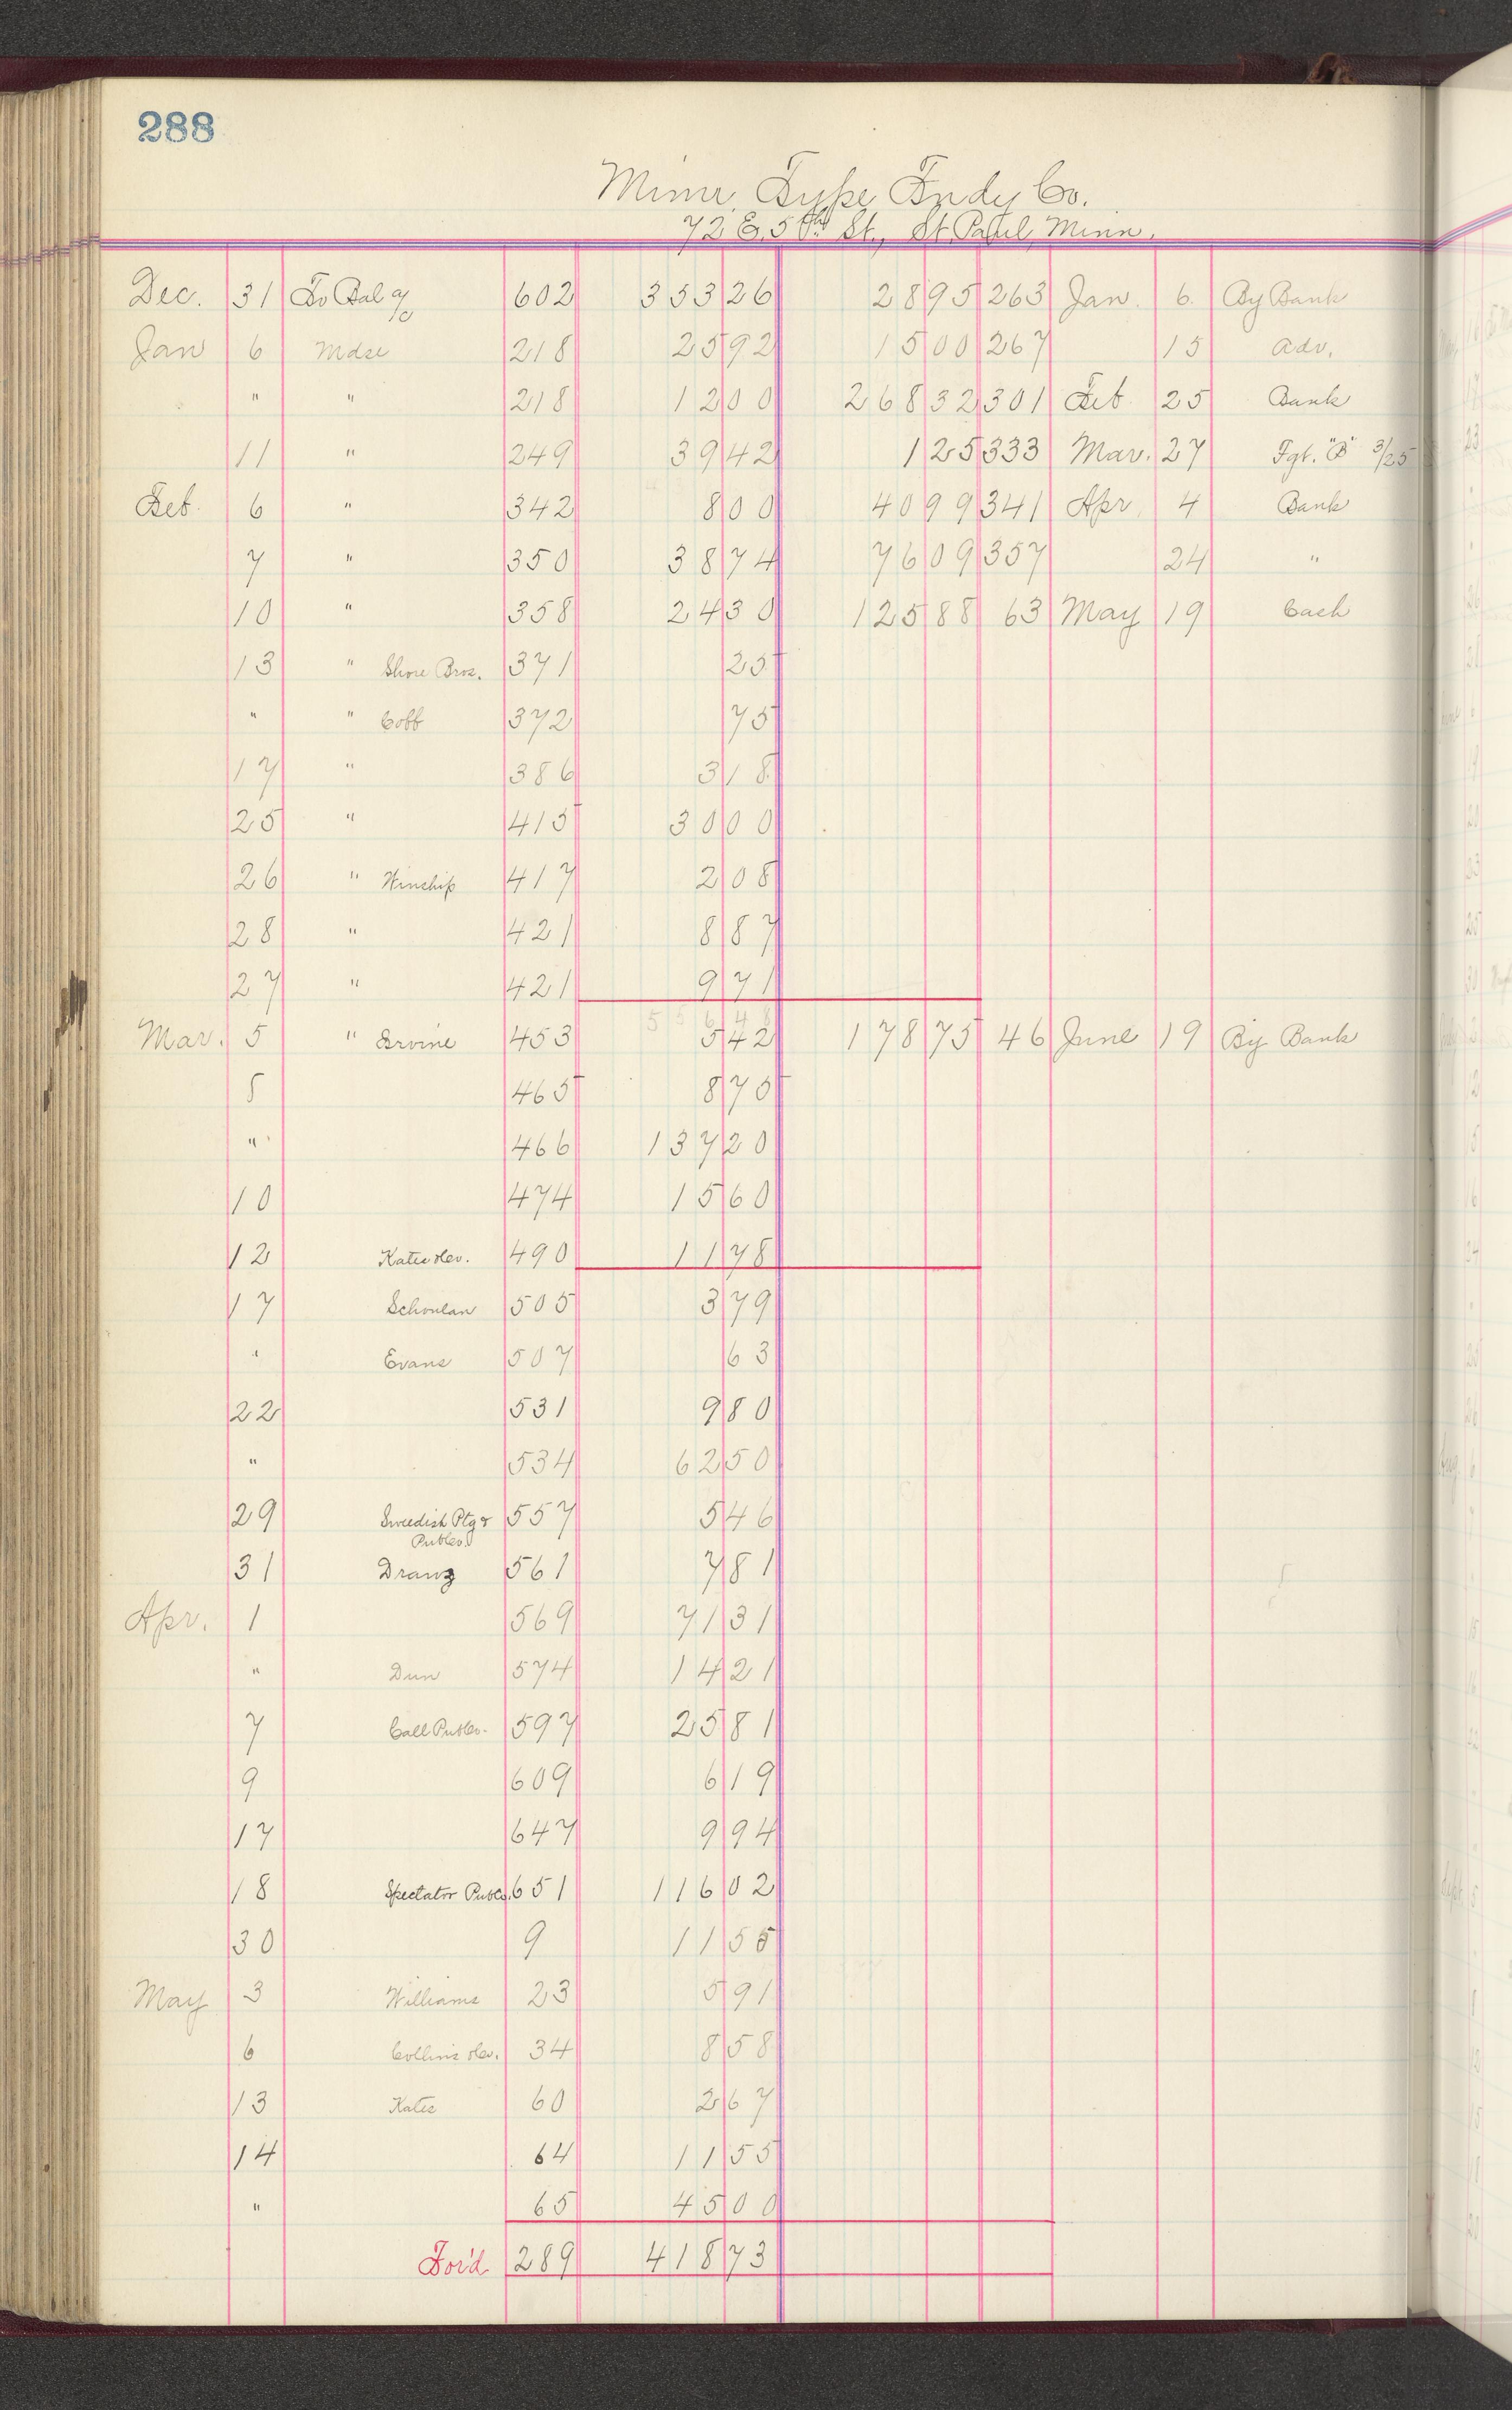 288
Minn. Type Fndy Co.
72 E. 5th St., St. Paul, Minn.
Dec. 31 To Bal a/c 602 353 26 28 95 263 Jan. 6 By Bank
Jan 6 Mdse 218 25 92 15 00 267 15 Adv.
" " 218 12 00 268 32 301 Feb 25 Bank
11 " 249 39 42 1 25 333 Mar. 27 Fgt. "B" 3/25
Feb. 6 " 342 8 00 40 99 341 Apr. 4 Bank
7 " 350 38 74 76 09 357 24 "
10 " 358 24 30 125 88 63 May 19 Cash
13 " Shore Bros. 371 25
" " Cobb 372 75
17 " 386 3 18
25 " 415 30 00
26 " Winship 417 2 08
28 " 421 8 87
27 " 421 9 71
556 48
Mar. 5 " Irvine 453 5 42 178 75 46 June 19 By Bank
8 465 8 70
" 466 137 20
10 474 15 60
12 Kates & Co. 490 11 78
17 505 3 79
" Evans 507 63
22 531 9 80
" 534 62 50
29 Swedish Ptg & 557 5 46
Pub Co.
31 Dranz 561 7 81
Apr. 1 569 71 31
" Dun 574 14 21
7 Call Pub Co. 597 25 81
9 609 6 19
17 647 9 94
18 Spectator Pub Co. 651 116 02
30 9 11 55
May 3 Williams 23 5 91
6 Collins & Co. 34 8 58
13 Kates 60 2 67
14 64 11 55
" 65 45 00
For'd 289 418 73